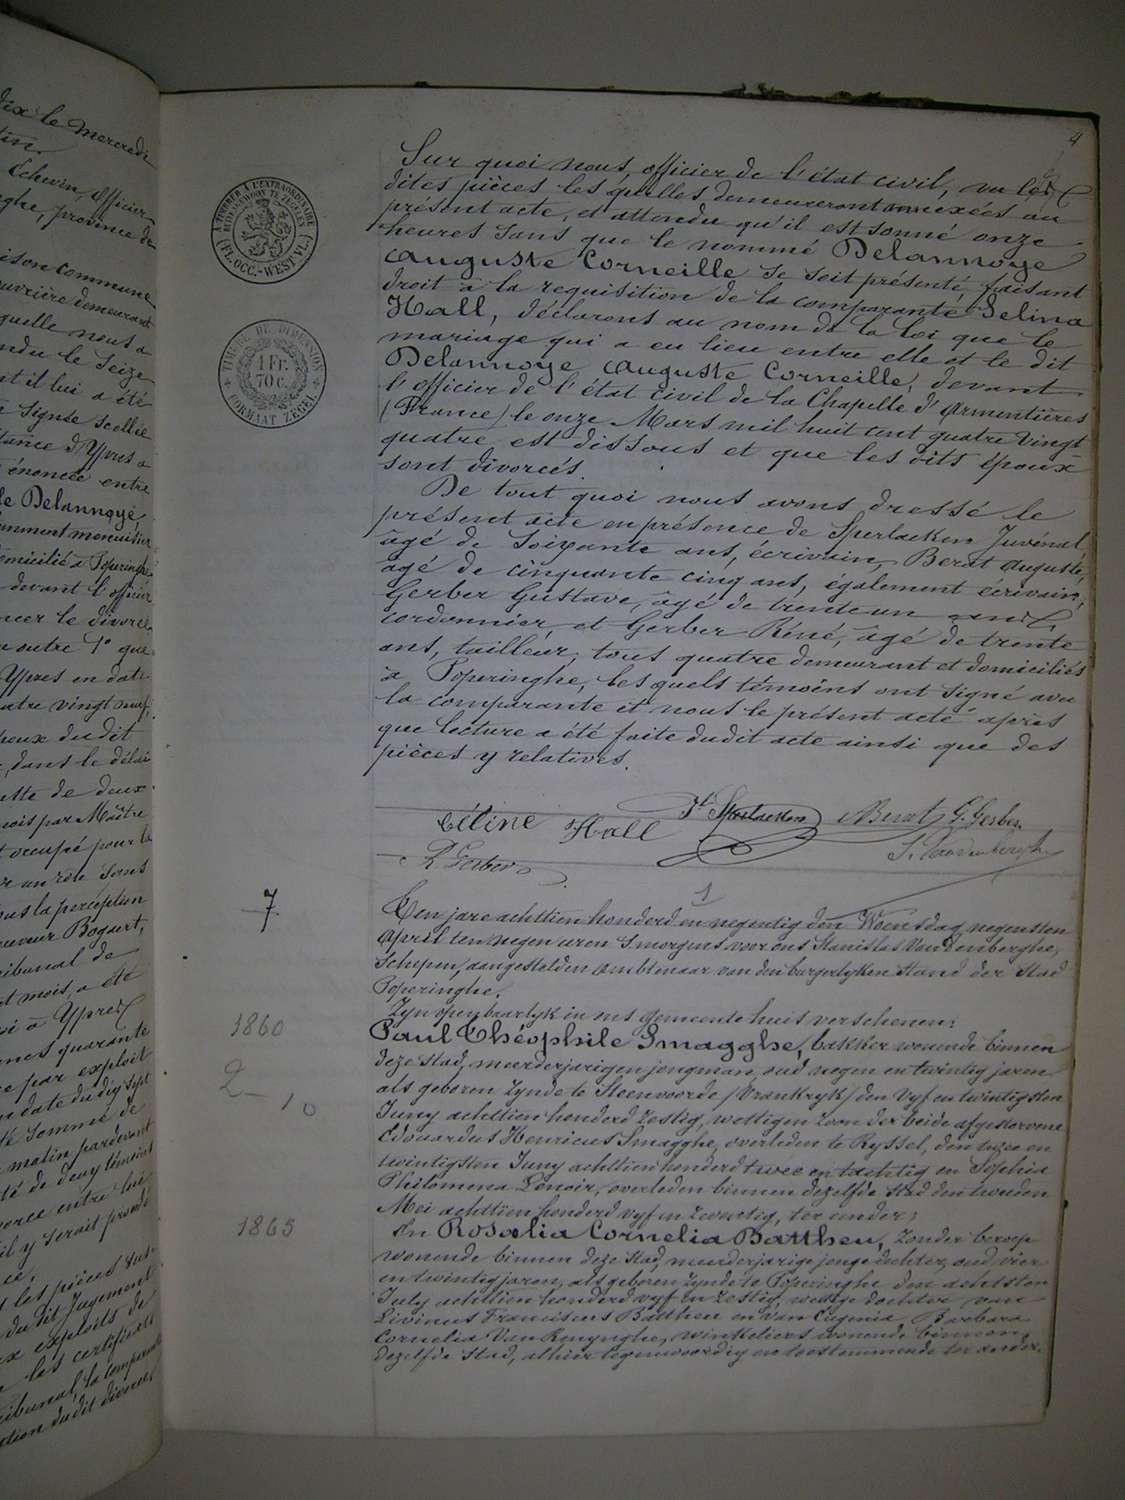 dix le Mercredi
Echevin, Officier
province de
maison commune
ouvrière demeurant
quelle nous a
le Seize
il lui a été
signée scellée
d'Ypres a
énoncée entre
le Delannoye,
menuisier
domicilié à Poperinghe
devant l'officier
le divorce
outre 1° que
Ypres en date
quatre vingt neuf,
époux du dit
dans le délai
de deux
mois par Maître
occupé pour la
un rôle Sans
sous la perception
Bogaert,
Tribunal de
mois, a été
à Ypres
quarante
par exploit
date du dix sept
Sommé de
matin pardevant
de deux témoins
divorce entre lui
il y serait procédé
les pièces
du dit Jugement
exploits de
les certificats
Tribunal, la comparante
du dit divorce,
4
A TIMBRER A L'EXTRAORDINAIRE
BUITENGEWOON TE ZEGELEN
(FL. OCC.-WEST VL.)
TIMBRE DE DIMENSION
1 FR.
70 C.
FORMAAT ZEGEL
Sur quoi nous, officier de l'état civil, vu les
dites pièces les quelles demeureront annexées au
présent acte, et attendu qu'il est sonné onze
heures sans que le nommé Delannoye
Auguste Corneille se soit présenté, faisant
droit à la requisition de la comparante Selina
Hall, déclarons au nom de la loi que le
mariage qui a eu lieu entre elle et le dit
Delannoye Auguste Corneille, devant
l'officier de l'état civil de la Chapelle d'Armentières
(France) le onze Mars mil huit cent quatre vingt
quatre est dissous et que les dits époux
sont divorcés.
De tout quoi nous avons dressé le
présent acte en présence de Sperlaeken Juvénal
âgé de soixante ans, écrivain, Berat Auguste,
âgé de cinquante cinq ans, également écrivain,
Gerber Gustave, âgé de trente un ans,
cordonnier, et Gerber Réné, âgé de trente
ans, tailleur, tous quatre demeurant et domiciliés
à Poperinghe, les quels témoins ont signé avec
la comparante et nous le présent acte après
que lecture a été faite dudit acte ainsi que des
pièces y relatives.
Céline Hall Jl Sperlaeken A Berat G. Gerber
R Gerber S. Vandenberghe
7
1
Ten jare achttien honderd en negentig den Woensdag negensten
April ten negen uren S'morgens voor ons Stanislas Vandenberghe,
Schepen, aangestelden ambtenaar van den burgerlyken Stand der Stad
Poperinghe.
Zyn openbaarlyk in ons gemeente huis verschenen:
1860
Paul Théophile Smagghe, bakker wonende binnen
deze stad, meerderjarigen jongman, oud negen en twintig jaren
2 – 10
als geboren zynde te Steenvoorde (Vrankryk) den vyf en twintigsten
Juny achttien honderd zestig, wettigen zoon der beide afgestorvene
Edouardus Henricus Smagghe, overleden te Ryssel, den twee en
twintigsten Juny achttien honderd twee en tachtig en Sophia
Philomena Lenoir, overleden binnen dezelfde stad den tweeden
Mei achttien honderd vyf en zeventig, ter eender;
1865
En Rosalia Cornelia Battheu, zonder beroep
wonende binnen deze Stad, meerderjarige jonge dochter, oud vier
en twintig jaren, als geboren zynde te Poperinghe den achtsten
July achttien honderd vyf en zestig, wettige dochter van
Livinus Franciscus Battheu en van Eugenia Barbara
Cornelia Van Renynghe, winkeliers wonende binnen
dezelfde Stad, alhier tegenwoordig en toestemmende ter ander.